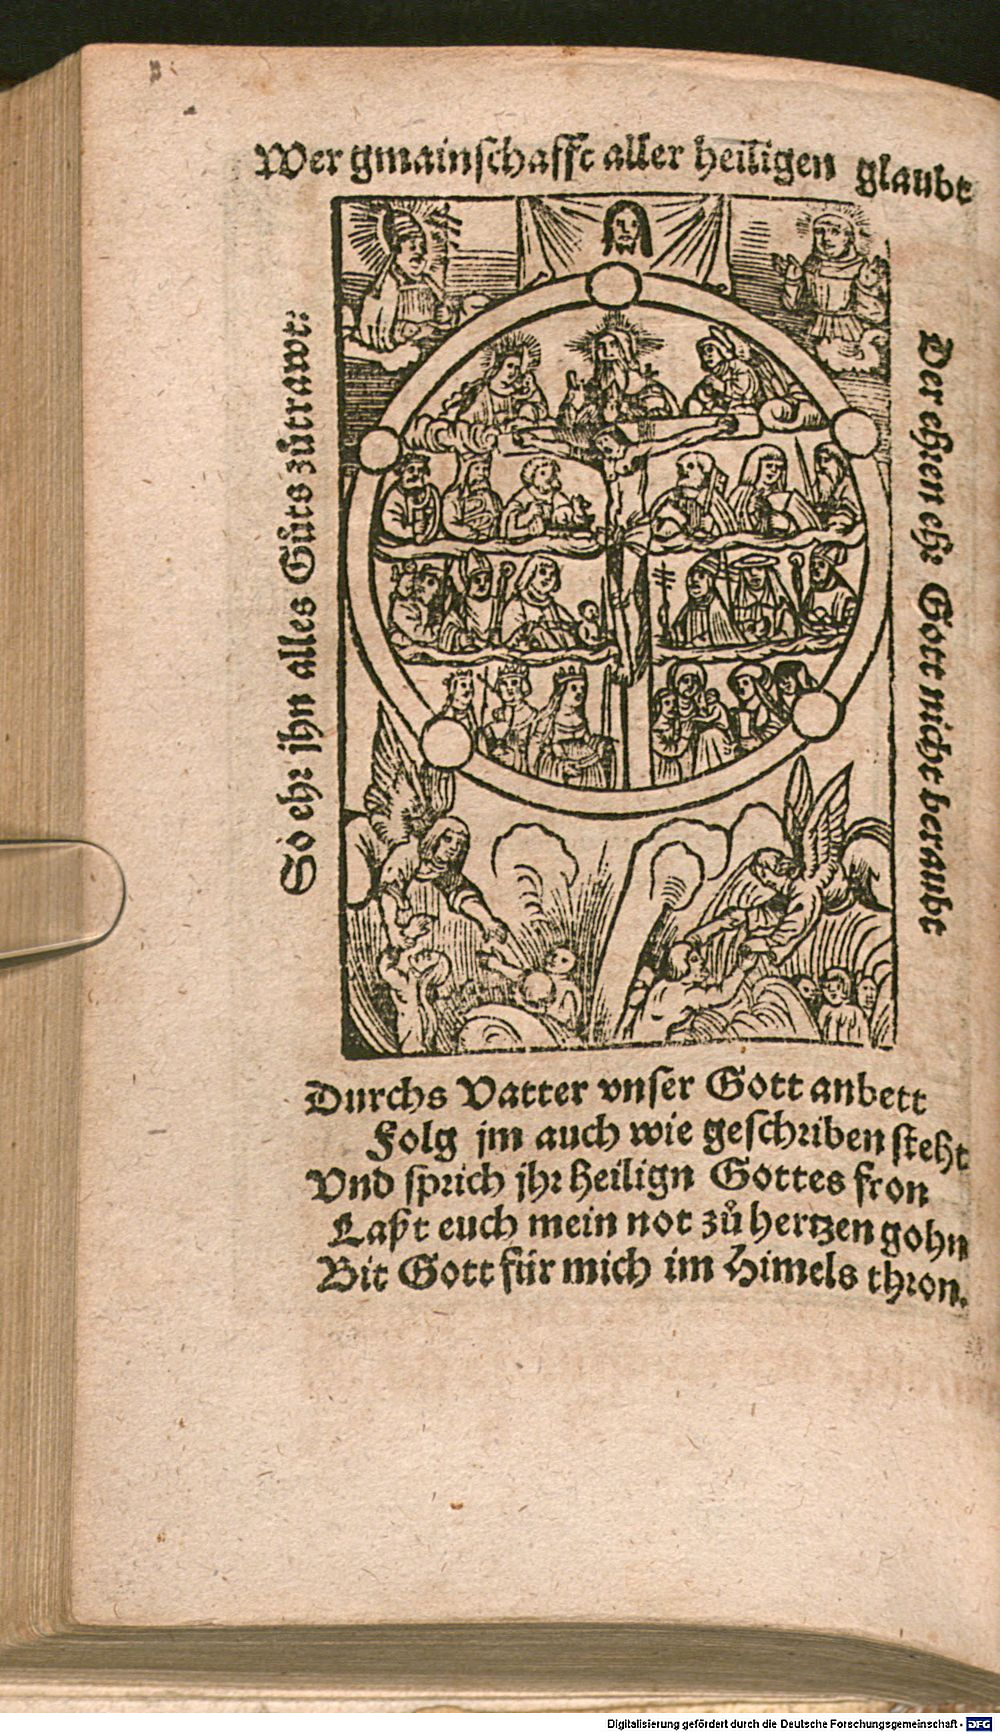 Wer gmainschafft aller heiligen glaubt
Der ehien ehr Gott nicht beraubt
So ehr jhn alles Gůts zůtrawt:
Durchs Vatter vnser Gott anbett
Folg jm auch wie geschriben steht
Vnd sprich jhr heilign Gottes fron
Laßt euch mein not zů hertzen gohn
Bit Gott für mich im Himels thron.
Digitalisierung gefördert durch die Deutsche Forschungsgemeinschaft - DFG